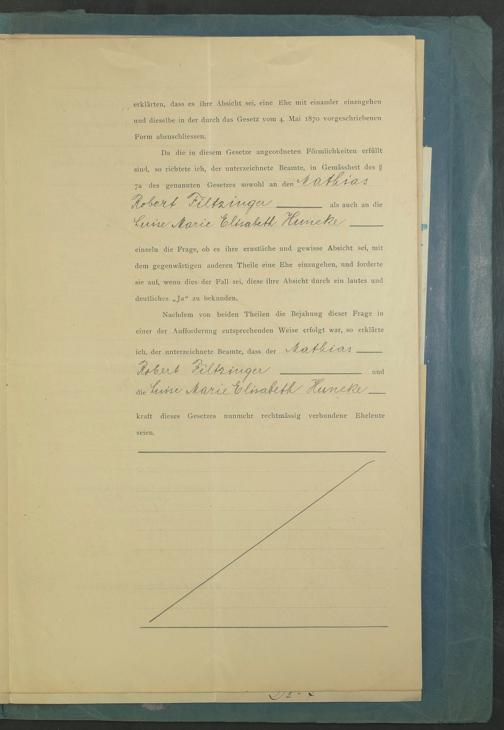 erklärten, dass es ihre Absicht sei, eine Ehe mit einander einzugehen
und dieselbe in der durch das Gesetz vom 4. Mai 1870 vorgeschriebenen
Form abzuschliessen.
Da die in diesem Gesetze angeordneten Förmlichkeiten erfüllt
sind, so richtete ich, der unterzeichnete Beamte, in Gemässheit des §
7a des genannten Gesetzes sowohl an den Mathias
Robert Filtzinger als auch an die
Luise Marie Elisabeth Huneke
einzeln die Frage, ob es ihre ernstliche und gewisse Absicht sei, mit
dem gegenwärtigen anderen Theile eine Ehe einzugehen, und forderte
sie auf, wenn dies der Fall sei, diese ihre Absicht durch ein lautes und
deutliches „Ja" zu bekunden.
Nachdem von beiden Theilen die Bejahung dieser Frage in
einer der Aufforderung entsprechenden Weise erfolgt war, so erklärte
ich, der unterzeichnete Beamte, dass der Mathias
Robert Filtzinger und
die Luise Marie Elisabeth Huneke
kraft dieses Gesetzes nunmehr rechtmässig verbundene Eheleute
seien.